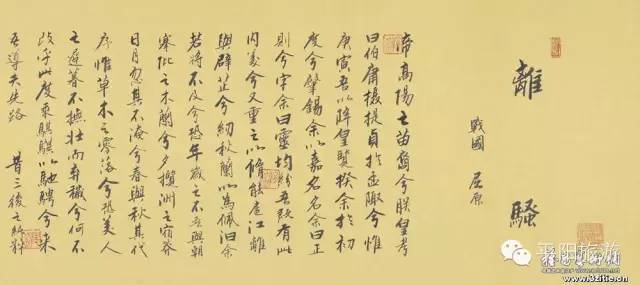 離騷
戰國 屈原
帝高陽之苗裔兮朕皇考
曰伯庸攝提貞於孟陬兮惟
庚寅吾以降皇覽揆余於初
度兮肇錫余以嘉名名余曰正
則兮字余曰靈均紛吾既有此
內美兮又重之以脩能扈江離
與辟芷兮紉秋蘭以為佩汩余
若將不及兮恐年歲之不吾與朝
搴阰之木蘭兮夕攬洲之宿莽
日月忽其不淹兮春與秋其代
序惟草木之零落兮恐美人
之遲暮不撫壯而棄穢兮何不
改乎此度乘騏驥以馳騁兮來
吾導夫先路 昔三後之純粹
平阳旅游